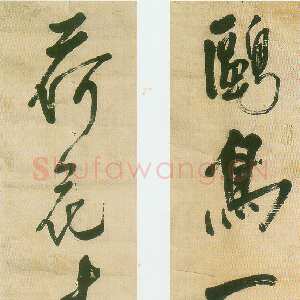 鷗鳥一
荷花十
Shufawang.CN